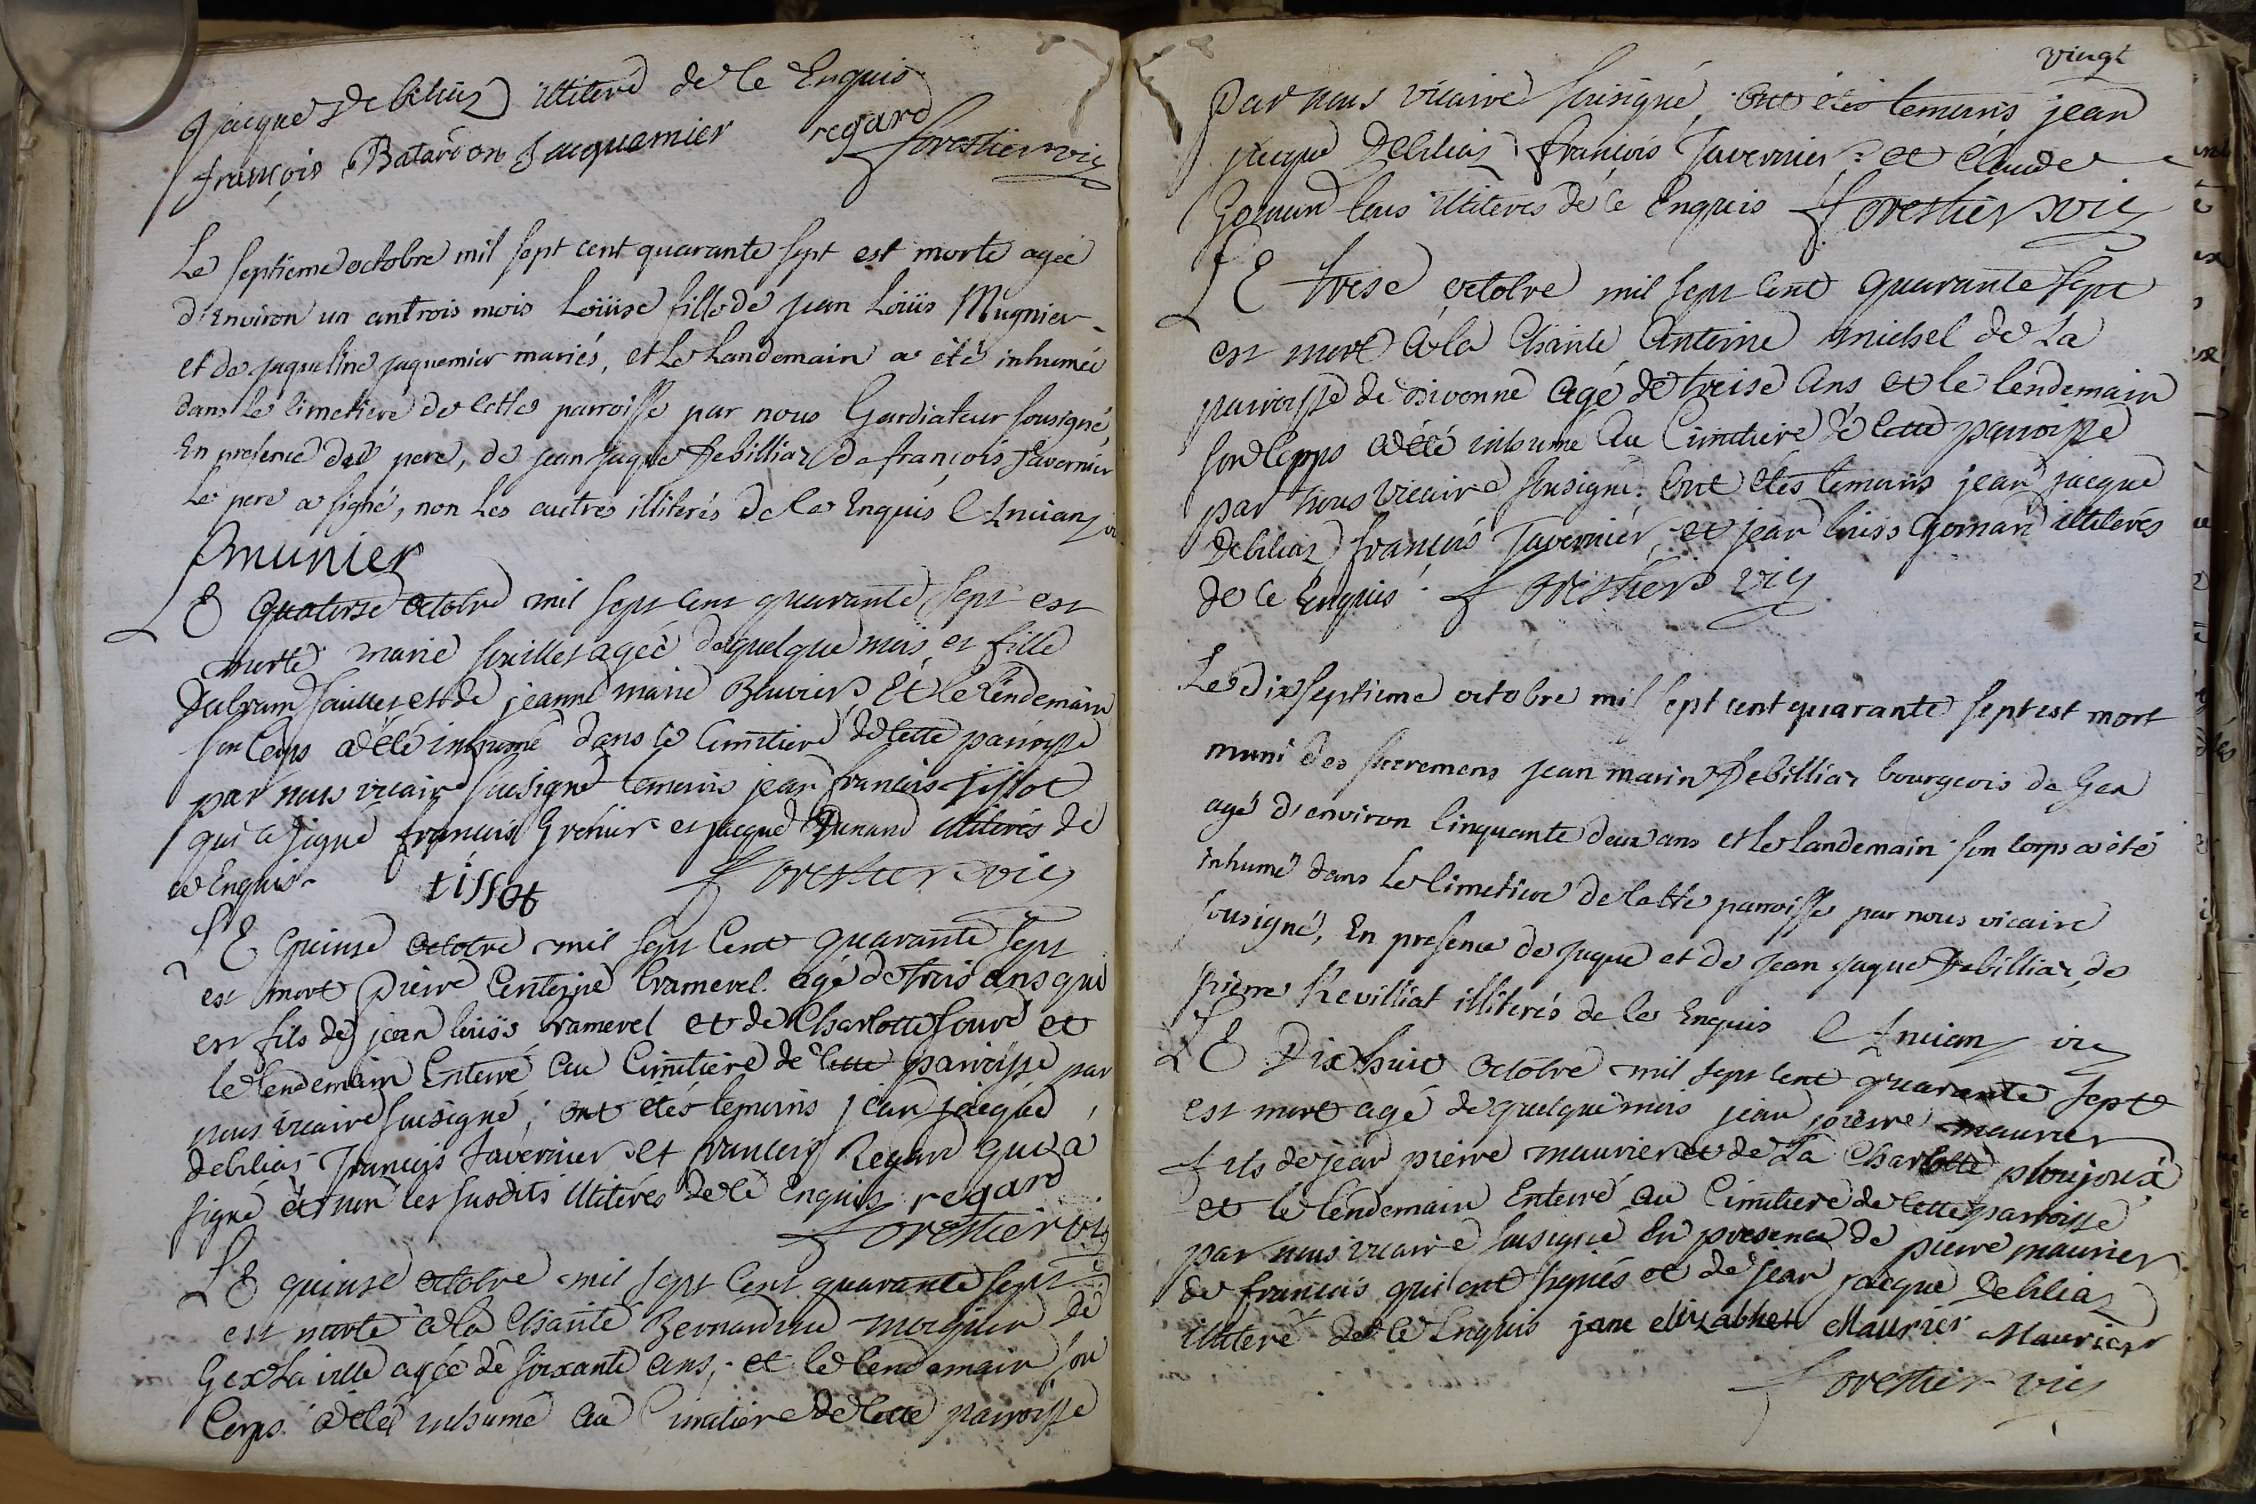 jacque Debiliaz illiteré de ce Enquis
françois Batardon Jacquemier regard
forestier vic
Le septieme octobre mil sept cent quarante sept est morte agée
d'environ un an trois mois Loüise fille de jean Loüis Mugnier
et de jaqueline jaquemier mariés, et Le Landemain a été inhumée
dans Le cimetiere de cette parroisse par nous Gardiateur sousigné,
En presence du pere, de jean jaque Debilliaz de françois Tavernier
Le pere a signé, non Les autres illiterés de ce Enquis
munier
LE quatorse octobre mil sept cent quarante sept est
morte marie saillet agée de quelque mois et fille
Dabram saillet et de jeanne marie Bouvier, Et le lendemain
son Corps a été inhumé dans le Cimitiere de cette parroisse
par nous vicaire sousigné temoins jean françois tissot
qui a signé françois Grenier et jacque Dunand illiterés de
ce Enquis tissot forestier vic
LE quinse octobre mil sept Cent quarante sept
est mort pierre Antoine Cramerel agé de trois ans qui
est fils de jean louïs cramerel et de Charlotte fouré et
le lendemain Enterré au Cimitiere de cette parroisse par
nous vicaire sousigné; ont étés temoins jean jacque
debiliaz françois Tavernier et françois Regard qui a
signé et non les susdits illiterés de ce Enquis regard
forestier vic
LE quinse octobre mil sept Cent quarante sept
est morte a la Charité Bernardine de
Gex La ville agée de soixante ans, et le lendemain son
Corps a été inhumé au Cimitiere de cette parroisse
vingt
par nous vicaire sousigné, ont étés temoins jean
jacque Debiliaz françois Tavernier et Claude
Gomand tous illiterés de ce Enquis forestier vic
LE trese octobre mil sept Cent quarante sept
est mort a la Charité Antoine michel de La
parroisse de divonne agé de treise ans et le lendemain
son Corps a été inhumé au Cimitiere de cette parroisse
par nous vicaire sousigné. ont étés temoins jean jacque
Debiliaz françois Tavernier et jean louis Gomand illiterés
de ce Enquis forestier vic
Le dix septieme octobre mil sept cent quarante sept est mort
muni des sacremens jean marin Debilliaz bourgeois de Gex
agé d'environ Cinquante deux ans et Le Landemain son corps a été
inhumé dans Le Cimetiere de cette parroisse par nous vicaire
sousigné, En presence de jaque et de jean jaque Debilliaz, de
pierre Revilliat illiterés de ce Enquis vic
LE Dix huit octobre mil sept cent quarante sept
est mort agé de quelque mois jean pierre maurier
fils de jean pierre maurier et de La Charlotte ploujoux
et le lendemain Enterré au Cimitiere de cette parroisse
par nous vicaire sousigné En presence de pierre maurier
de françois qui ont signés et de jean jacque Debiliaz
illiteré de ce Enquis jane elizabhet Maurier Maurier
forestier vic